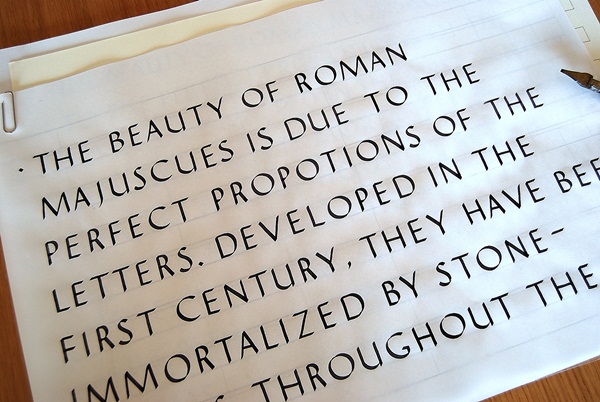 · THE BEAUTY OF ROMAN
MAJUSCUES IS DUE TO THE
PERFECT PROPOTIONS OF THE
LETTERS. DEVELOPED IN THE
FIRST CENTURY, THEY HAVE
IMMORTALIZED BY STONE-
THROUGHOUT THE